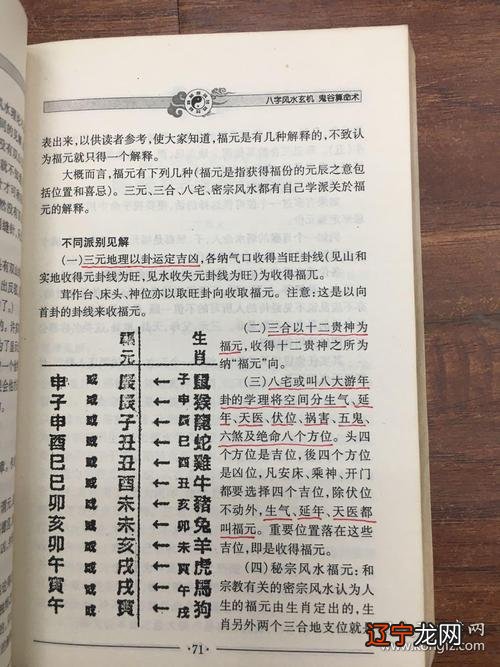 八字风水玄机 鬼谷算命术
表出来，以供读者参考，使大家知道，福元是有几种解释的，不致认
为福元就只得一个解释。
大概而言，福元有下列几种（福元是指获得福份的元辰之意包
括位置和喜忌）。三元、三合、八宅、密宗风水都有自己学派关於福
元的解释。
不同派别见解
（一）三元地理以卦运定吉凶，各纳气口收得当旺卦线（见山和
实地收得元卦线为旺，见水收失元卦线为旺）为收得福元。
茸作台、床头、神位亦以取旺卦向收取福元。注意：这是以向
首卦的卦线来收福元。
福元 生肖
申 或 辰 ← 子 鼠
子 或 辰 ← 申 猴
申 或 子 ← 辰 龍
酉 或 丑 ← 巳 蛇
巳 或 丑 ← 酉 雞
巳 或 酉 ← 丑 牛
卯 或 未 ← 亥 豬
亥 或 未 ← 卯 兔
卯 或 亥 ← 未 羊
午 或 戌 ← 寅 虎
寅 或 戌 ← 午 馬
午 或 寅 ← 戌 狗
（二）三合以十二贵神为
福元，收得十二贵神之所为
纳“福元”向。
（三）八宅或叫八大游年
卦的学理将空间分生气、延
年、天医、伏位、祸害、五鬼、
六煞及绝命八个方位。头四
个方位是吉位，後四个方位
是凶位，凡安床、乘神、开门
都要选择四个吉位，除伏位
不动外，生气、延年、天医都
叫福元。重要位置落在这些
吉位，即是收得福元。
（四）秘宗风水福元：和
宗教有关的密宗风水认为人
生的福元由生肖定出的，生
肖另外两个三合地支位就是
·71·
辽宁龙网